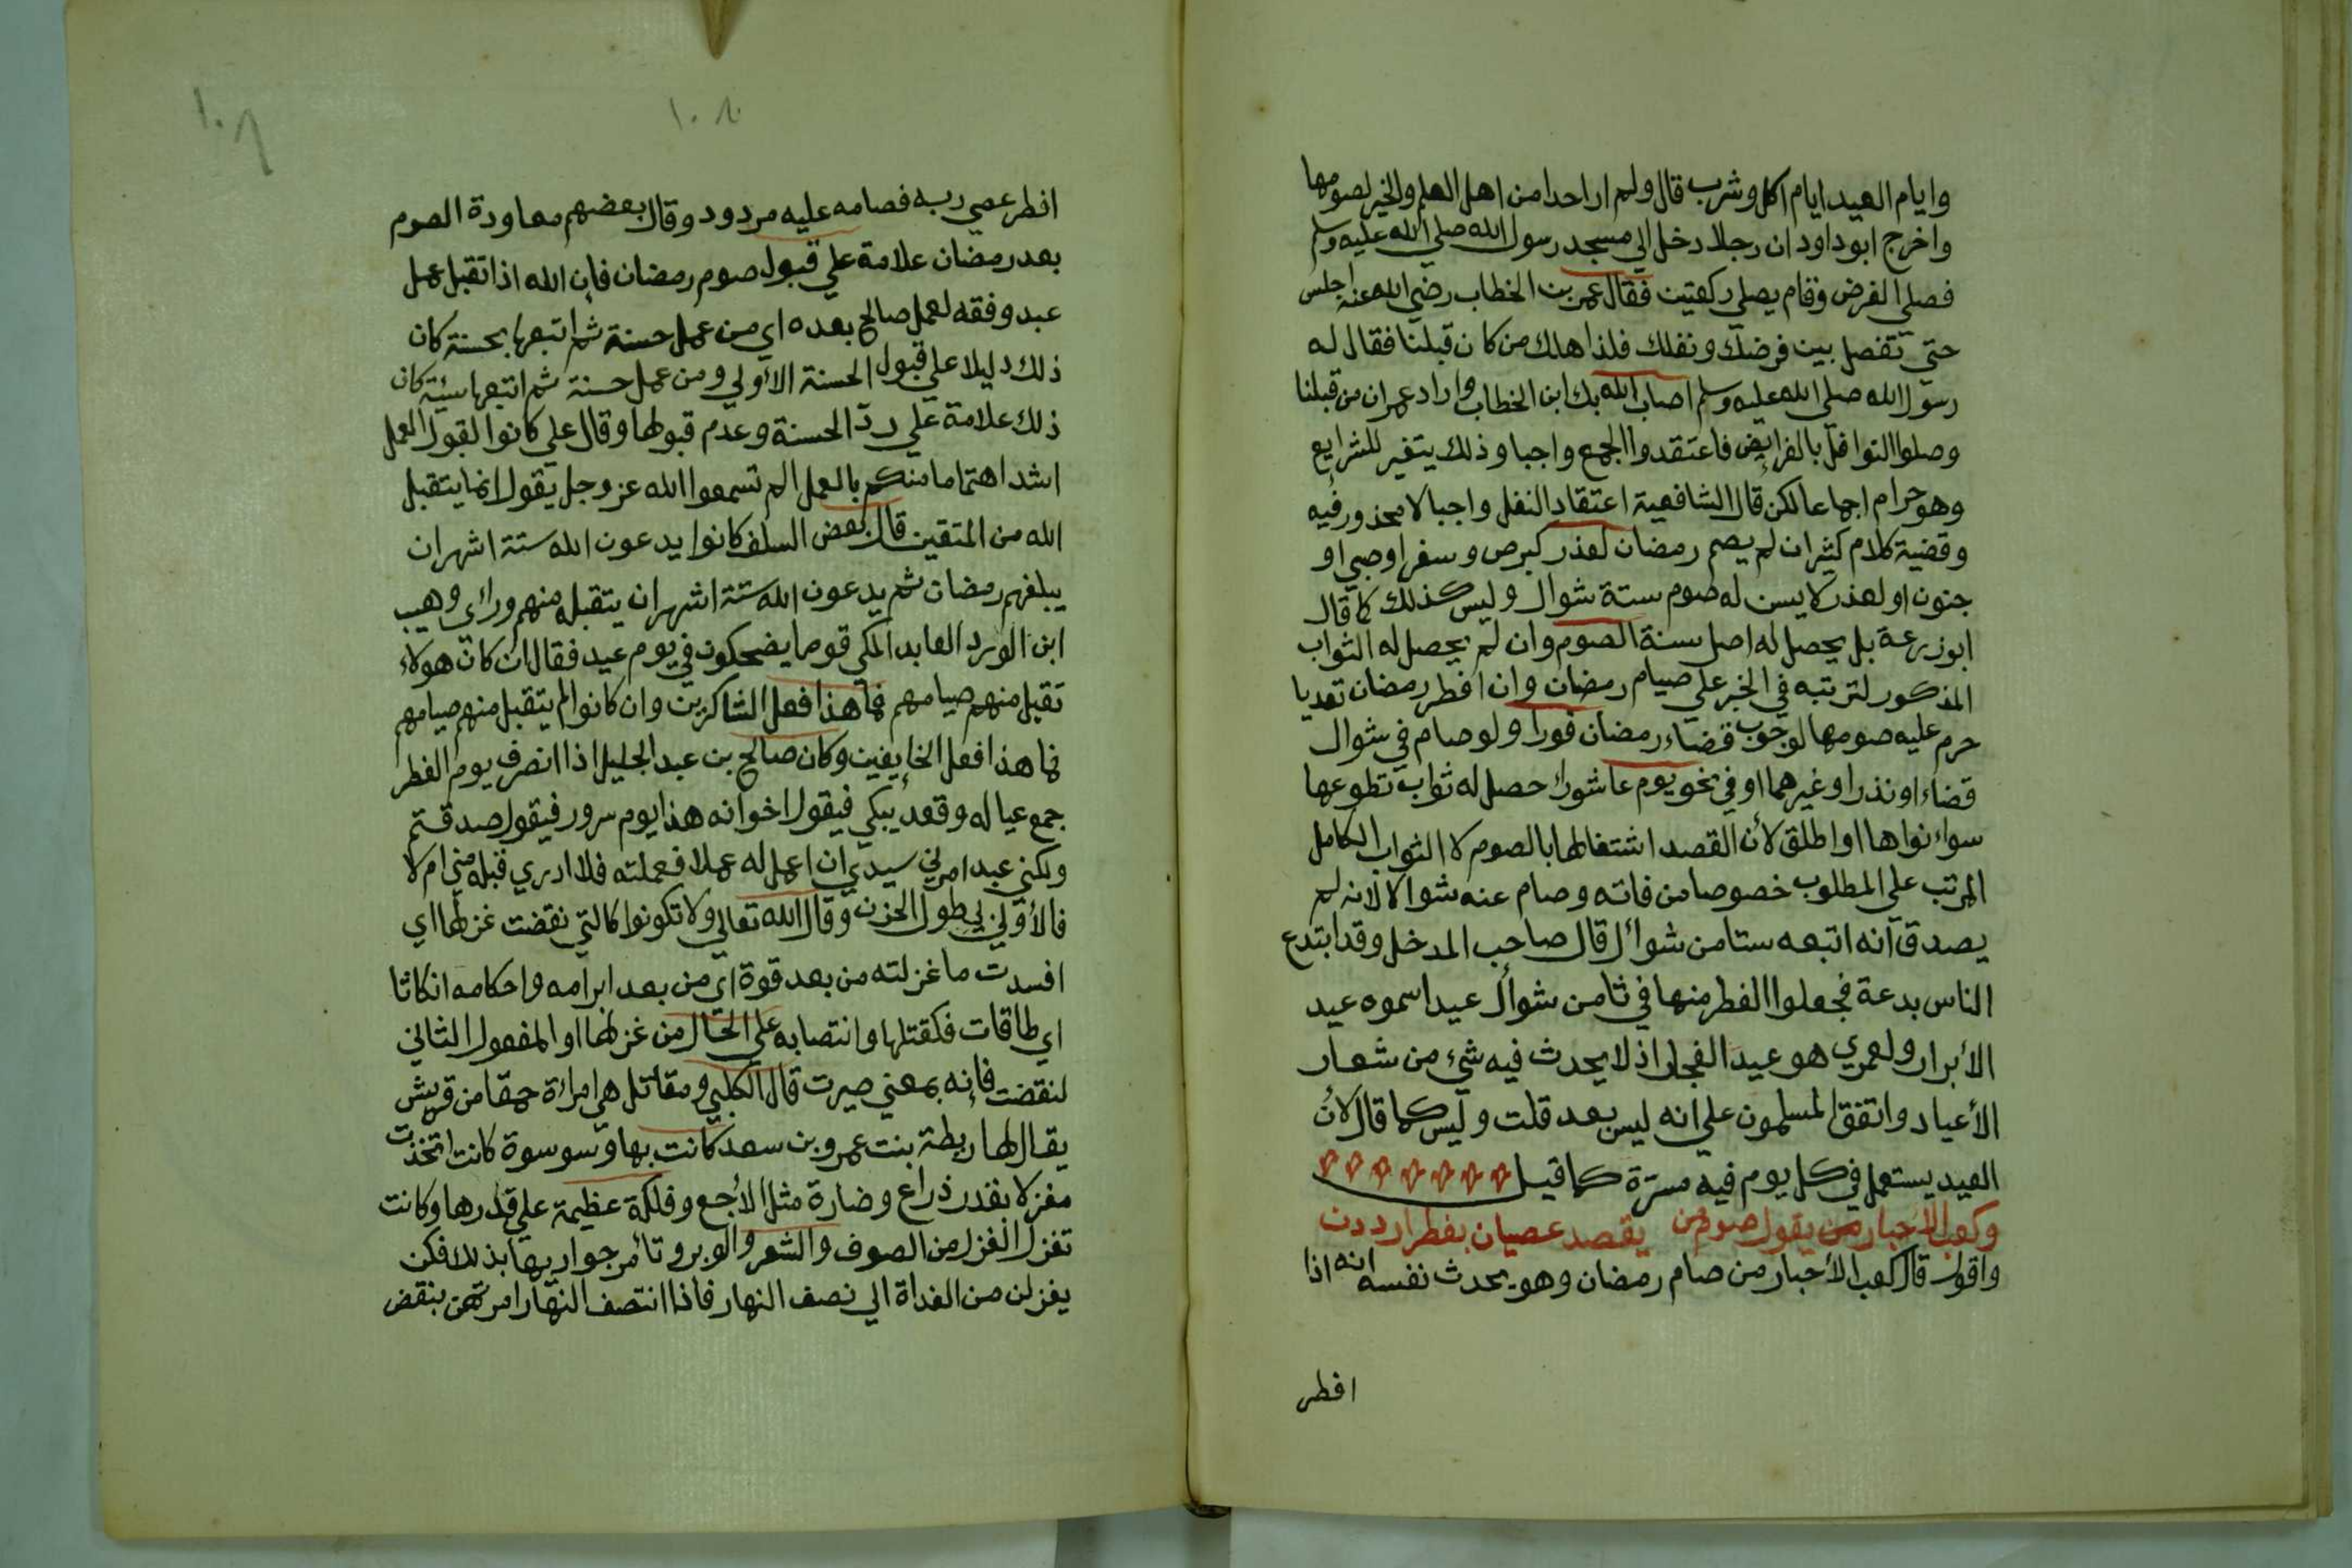 وايام العيد ايام اكل وشرب قال ولم ار احدا من اهل العلم والخير لصومها
واخرج ابوداود ان رجلا دخل الي مسجد رسول الله صلي الله عليه وسلم
فصلي الفرض وقام يصلي ركعتين فقال عمر بن الخطاب رضي الله عنه اجلس
حتي تفصل بين فرضك ونفلك فلذا هلك من كان قبلنا فقال له
رسول الله صلي الله عليه وسلم اصاب الله بك ابن الخطاب واراد عمر ان من قبلنا
وصلوا النوافل بالفرايض فاعتقدوا الجمع واجبا وذلك يتغير للشرايع
وهو حرام اجماعا لكن قال الشافعية اعتقاد النفل واجبا لا محذور فيه
وقضية كلام كثير ان لم يصم رمضان لعذر كمرض وسفر او صبي او
جنون او لعذر لا يسن له صوم ستة شوال وليس كذلك كما قال
ابوزرعة بل يحصل له اصل سنة الصوم وان لم يحصل له الثواب
المذكور لترتبه في الخبر علي صيام رمضان وان افطر رمضان تعديا
حرم عليه صومها لوجوب قضاء رمضان فورا ولو صام في شوال
قضاء او نذرا وغيرهما او في نحو يوم عاشورا حصل له ثواب تطوعها
سواء نواها او اطلق لأن القصد اشتغالها بالصوم لا الثواب الكامل
المرتب علي المطلوب خصوصا من فاته وصام عنه شوالا لانه لم
يصدق انه اتبعه ستا من شوال قال صاحب المدخل وقد ابتدع
الناس بدعة فجعلوا الفطر منها في ثامن شوال عيدا سموه عيد
الأبرار ولعمري هو عيد الفجار اذ لا يحدث فيه شيء من شعار
الأعياد واتفق المسلمون علي انه ليس بعد قلت وليس كما قال لأن
العيد يستعمل في كل يوم فيه مسرة كما قيل
وكعب الاحبار من يقول صوم من يقصد عصيان بفطر ارددن
واقول قال كعب الأحبار من صام رمضان وهو يحدث نفسه انه اذا
افطر
١٠٨
١٠٨
افطر عصي ربه فصامه عليه مردود وقال بعضهم معاودة الصوم
بعد رمضان علامة علي قبول صوم رمضان فان الله اذا تقبل عمل
عبد وفقه لعمل صالح بعده اي من عمل حسنة ثم اتبعها بحسنة كان
ذلك دليلا علي قبول الحسنة الاولي ومن عمل حسنة ثم اتبعها سيئة كان
ذلك علامة علي رد الحسنة وعدم قبولها وقال علي كانوا لقبول العمل
اشد اهتماما منكم بالعمل الم تسمعوا الله عز وجل يقول انما يتقبل
الله من المتقين قال بعض السلف كانوا يدعون الله ستة اشهر ان
يبلغهم رمضان ثم يدعون الله ستة اشهر ان يتقبله منهم وراي وهيب
ابن الورد العابد المكي قوما يضحكون في يوم عيد فقال ان كان هولاء
تقبل منهم صيامهم فما هذا فعل الشاكرين وان كانوا لم يتقبل منهم صيامهم
فما هذا فعل الخايفين وكان صالح بن عبد الجليل اذا انصرف يوم الفطر
جمع عياله وقعد يبكي فيقول اخوانه هذا يوم سرور فيقول صدقتم
ولكني عبد امرني سيدي ان اعمل له عملا فعملته فلا ادري قبله مني ام لا
فالأولي لي طول الحزن وقال الله تعالي ولا تكونوا كالتي نقضت غزلها اي
افسدت ما غزلته من بعد قوة اي من بعد ابرامه واحكامه انكاثا
اي طاقات فكقتلها وانتصابه علي الحال من غزلها او المفعول الثاني
لنقضت فانه بمعني صيرت قال الكلبي ومقاتل هي امراة حمقا من قريش
يقال لها ريطة بنت عمرو بن سعد كانت بها وسوسوة كانت اتخذت
مغزلا بقدر ذراع وضارة مثل الأجع وفلكة عظيمة علي قدرها وكانت
تغزل الغزل من الصوف والشعر والوبر وتأمر جواريها بذلك فكن
يغزلن من الغداة الي نصف النهار فاذا انتصف النهار امرتهن بنقض